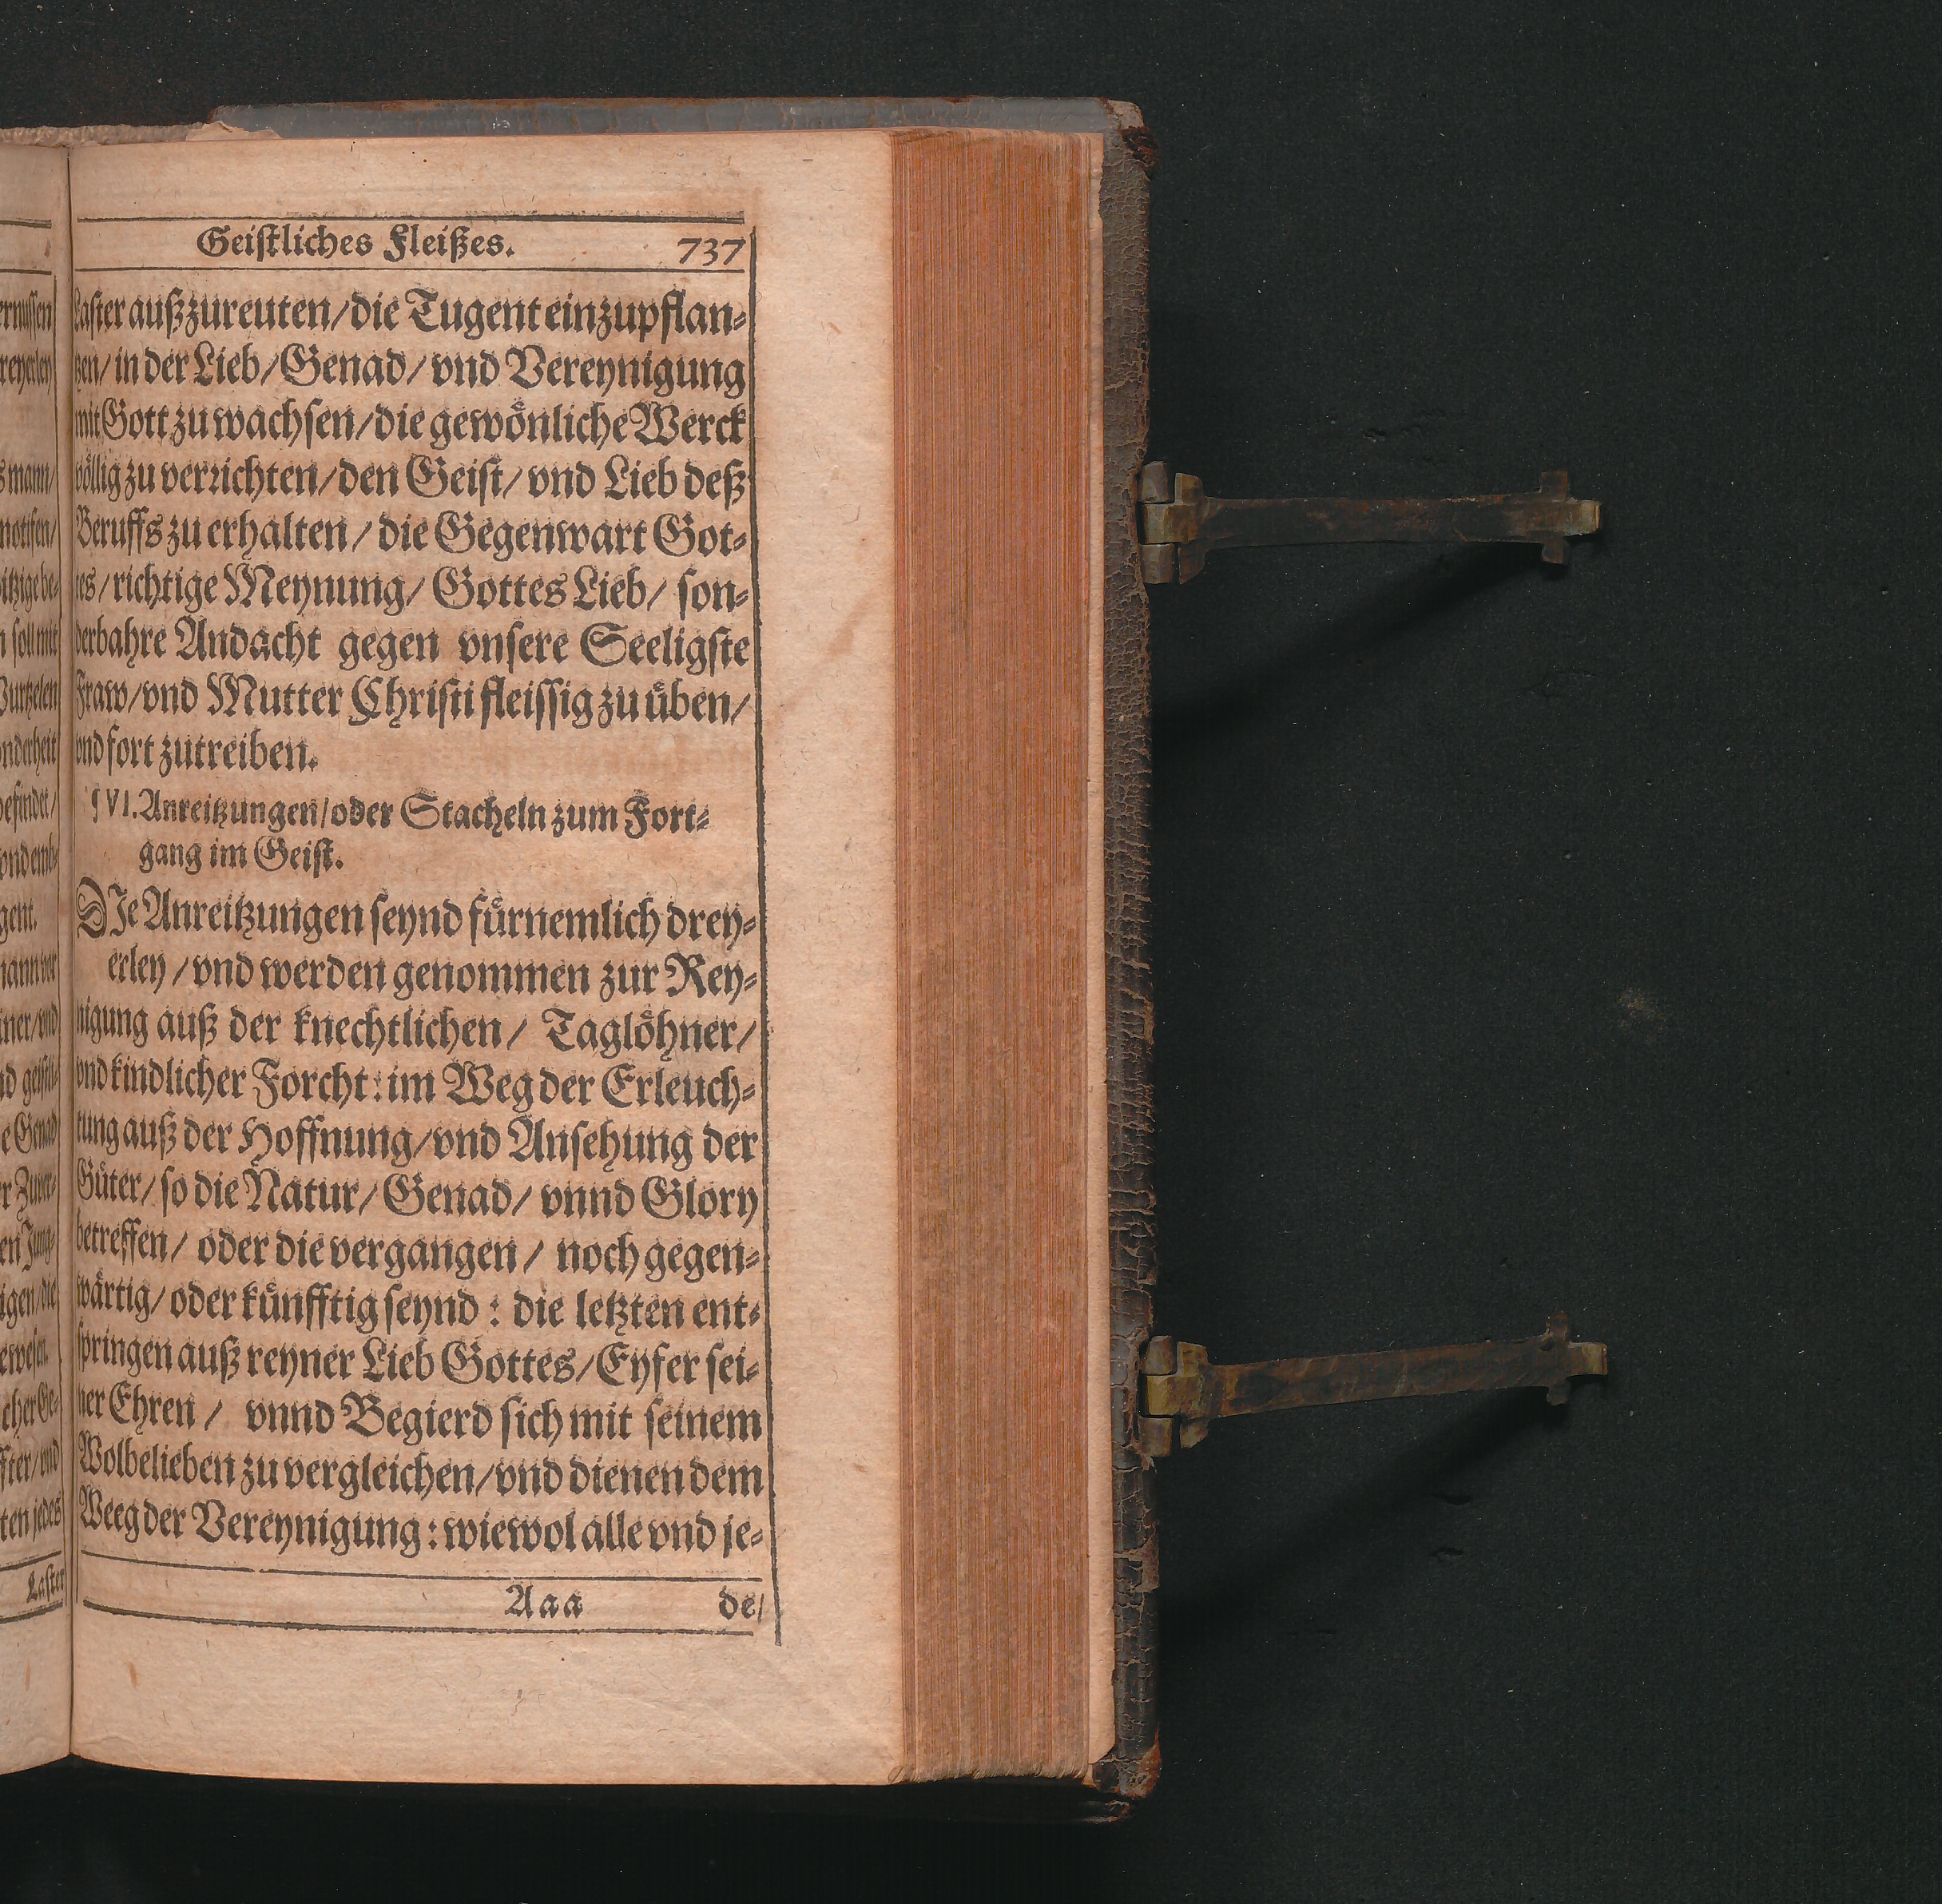 Geistliches Fleißes. 737
Laster außzureuten/die Tugent einzupflan-
tzen/in der Lieb/Genad/vnd Vereynigung
mit Gott zu wachsen/die gewönliche Werck
völlig zu verrichten/den Geist/vnd Lieb deß
Beruffs zu erhalten/die Gegenwart Got-
tes/richtige Meynung/Gottes Lieb/son-
derbahre Andacht gegen vnsere Seeligste
Fraw/vnd Mutter Christi fleissig zu üben/
vnd fort zutreiben.
§ VI. Anreitzungen/oder Stacheln zum Fort-
gang im Geist.
DIe Anreitzungen seynd fürnemlich drey-
erley/vnd werden genommen zur Rey-
nigung auß der knechtlichen/Taglöhner/
vnd kindlicher Forcht: im Weg der Erleuch-
tung auß der Hoffnung/vnd Ansehung der
Güter/so die Natur/Genad/vnnd Glory
betreffen/oder die vergangen/noch gegen-
wärtig/oder künfftig seynd: die letzten ent-
springen auß reyner Lieb Gottes/Eyfer sei-
ner Ehren/vnnd Begierd sich mit seinem
Wolbelieben zu vergleichen/vnd dienen dem
Weeg der Vereynigung: wiewol alle vnd je-
Aaa de/